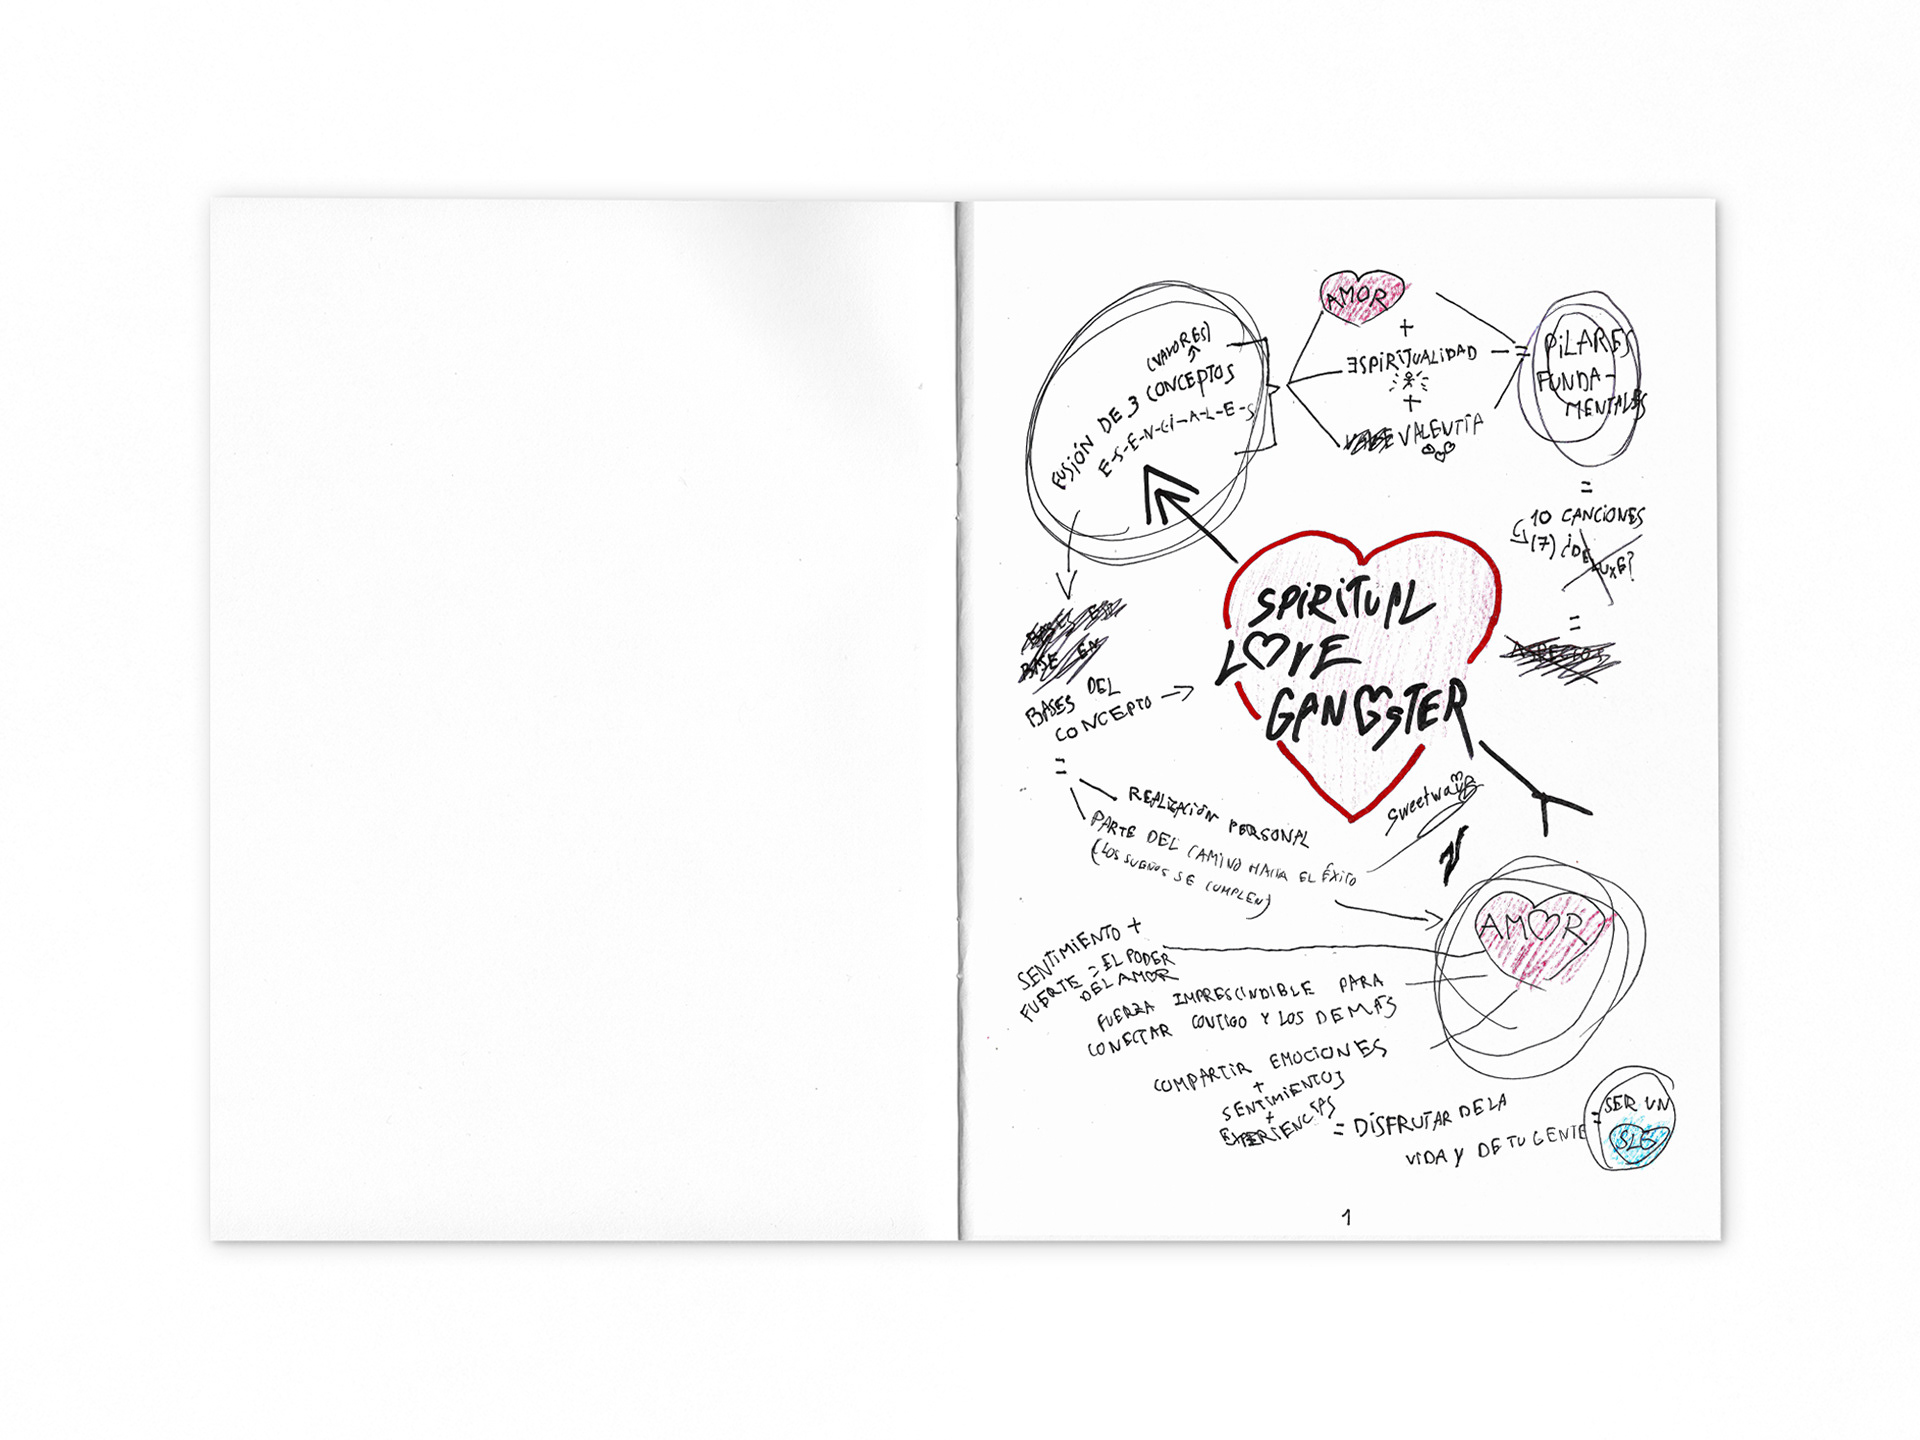 AMOR
+
ESPIRITUALIDAD
+
VALENTÍA
=
PILARES
FUNDA-
MENTALES
(VALORES)
FUSIÓN DE 3 CONCEPTOS
E-S-E-N-C-I-A-L-E-S
=
10 CANCIONES
(7) ¿DELUXE?
=
ASPECTOS
SPIRITUAL
LOVE
GANGSTER
BASE EN
BASES DEL
CONCEPTO
=
REALIZACIÓN PERSONAL
PARTE DEL CAMINO HACIA EL ÉXITO
(LOS SUEÑOS SE CUMPLEN)
sweetwave
AMOR
SENTIMIENTO +
FUERTE = EL PODER
DEL AMOR
FUERZA IMPRESCINDIBLE PARA
CONECTAR CONTIGO Y LOS DEMÁS
COMPARTIR EMOCIONES
+
SENTIMIENTOS
+
EXPERIENCIAS
= DISFRUTAR DE LA
VIDA Y DE TU GENTE
= SER UN
SLG
1